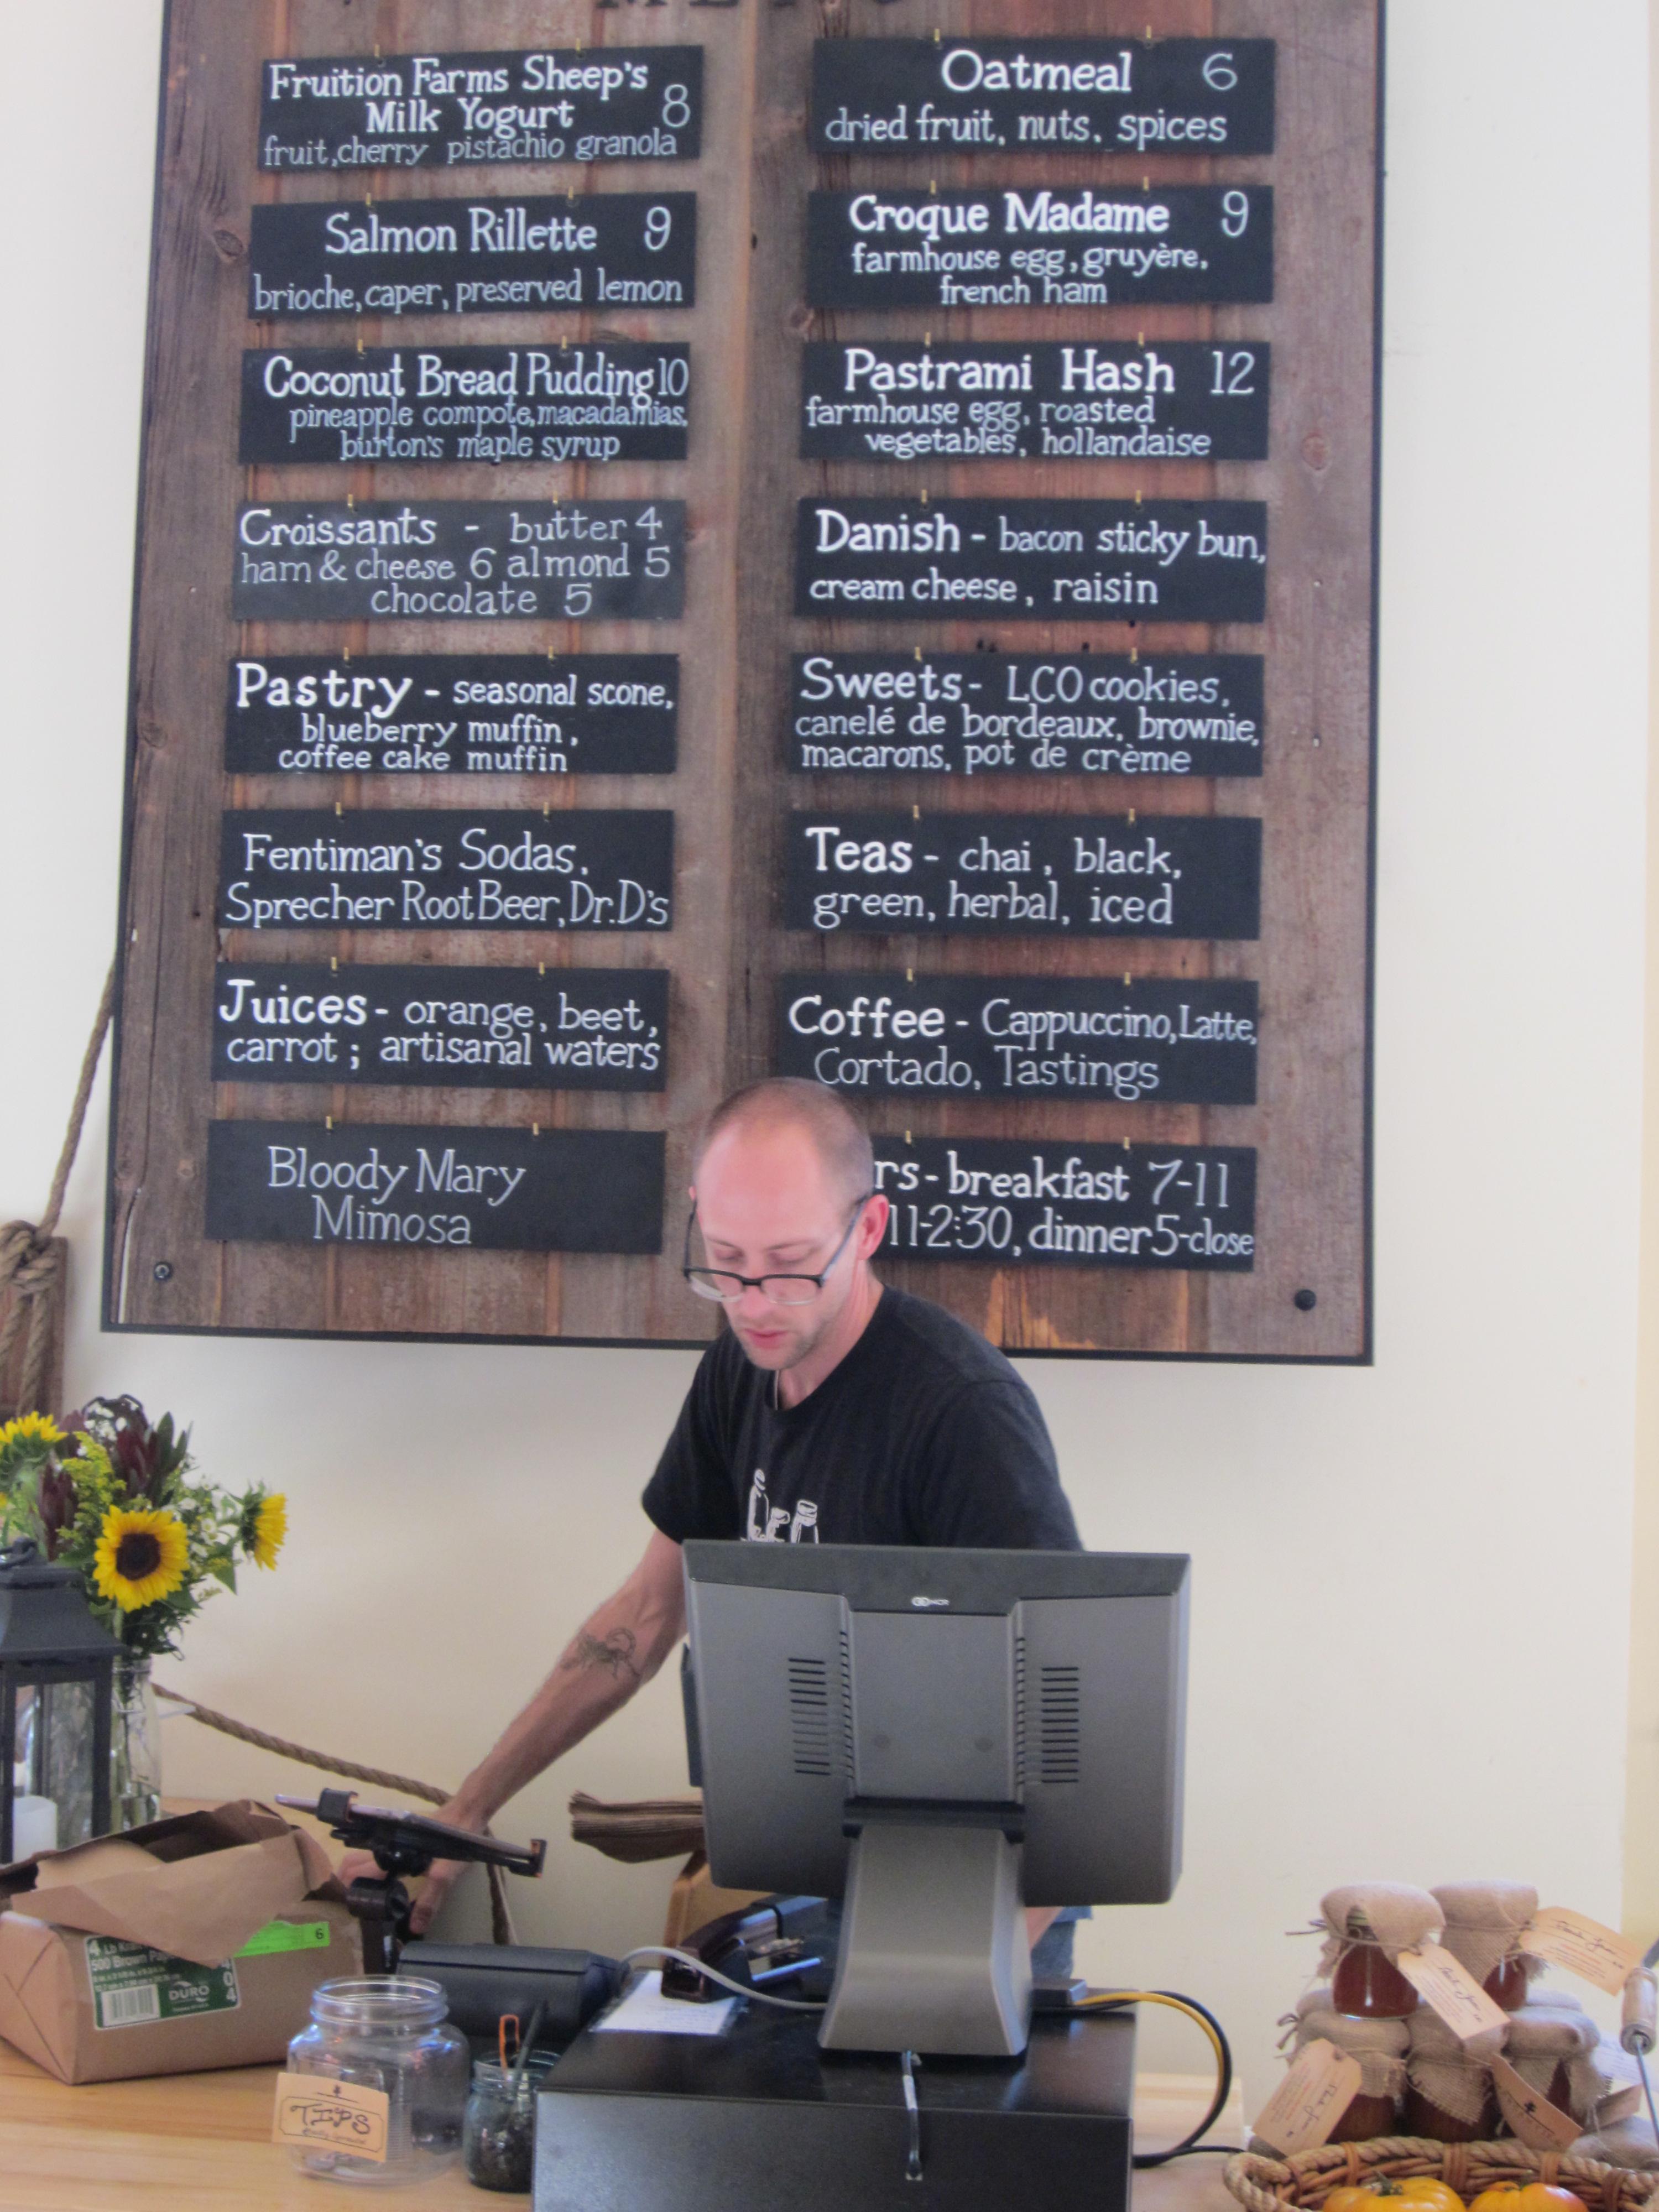 Fruition Farms Sheep's
Milk Yogurt 8
fruit, cherry pistachio granola
Salmon Rillette 9
brioche, caper, preserved lemon
Coconut Bread Pudding 10
pineapple compote, macadamias,
burton's maple syrup
Croissants - butter 4
ham & cheese 6 almond 5
chocolate 5
Pastry - seasonal scone,
blueberry muffin,
coffee cake muffin
Fentiman's Sodas,
Sprecher Root Beer, Dr. D's
Juices - orange, beet,
carrot ; artisanal waters
Bloody Mary
Mimosa
Oatmeal 6
dried fruit, nuts, spices
Croque Madame 9
farmhouse egg, gruyère,
french ham
Pastrami Hash 12
farmhouse egg, roasted
vegetables, hollandaise
Danish - bacon sticky bun,
cream cheese, raisin
Sweets - LCO cookies,
canelé de bordeaux, brownie,
macarons, pot de crème
Teas - chai, black,
green, herbal, iced
Coffee - Cappuccino, Latte,
Cortado, Tastings
rs - breakfast 7-11
11-2:30, dinner 5-close
6
500 Brown
DURO
404
TIPS